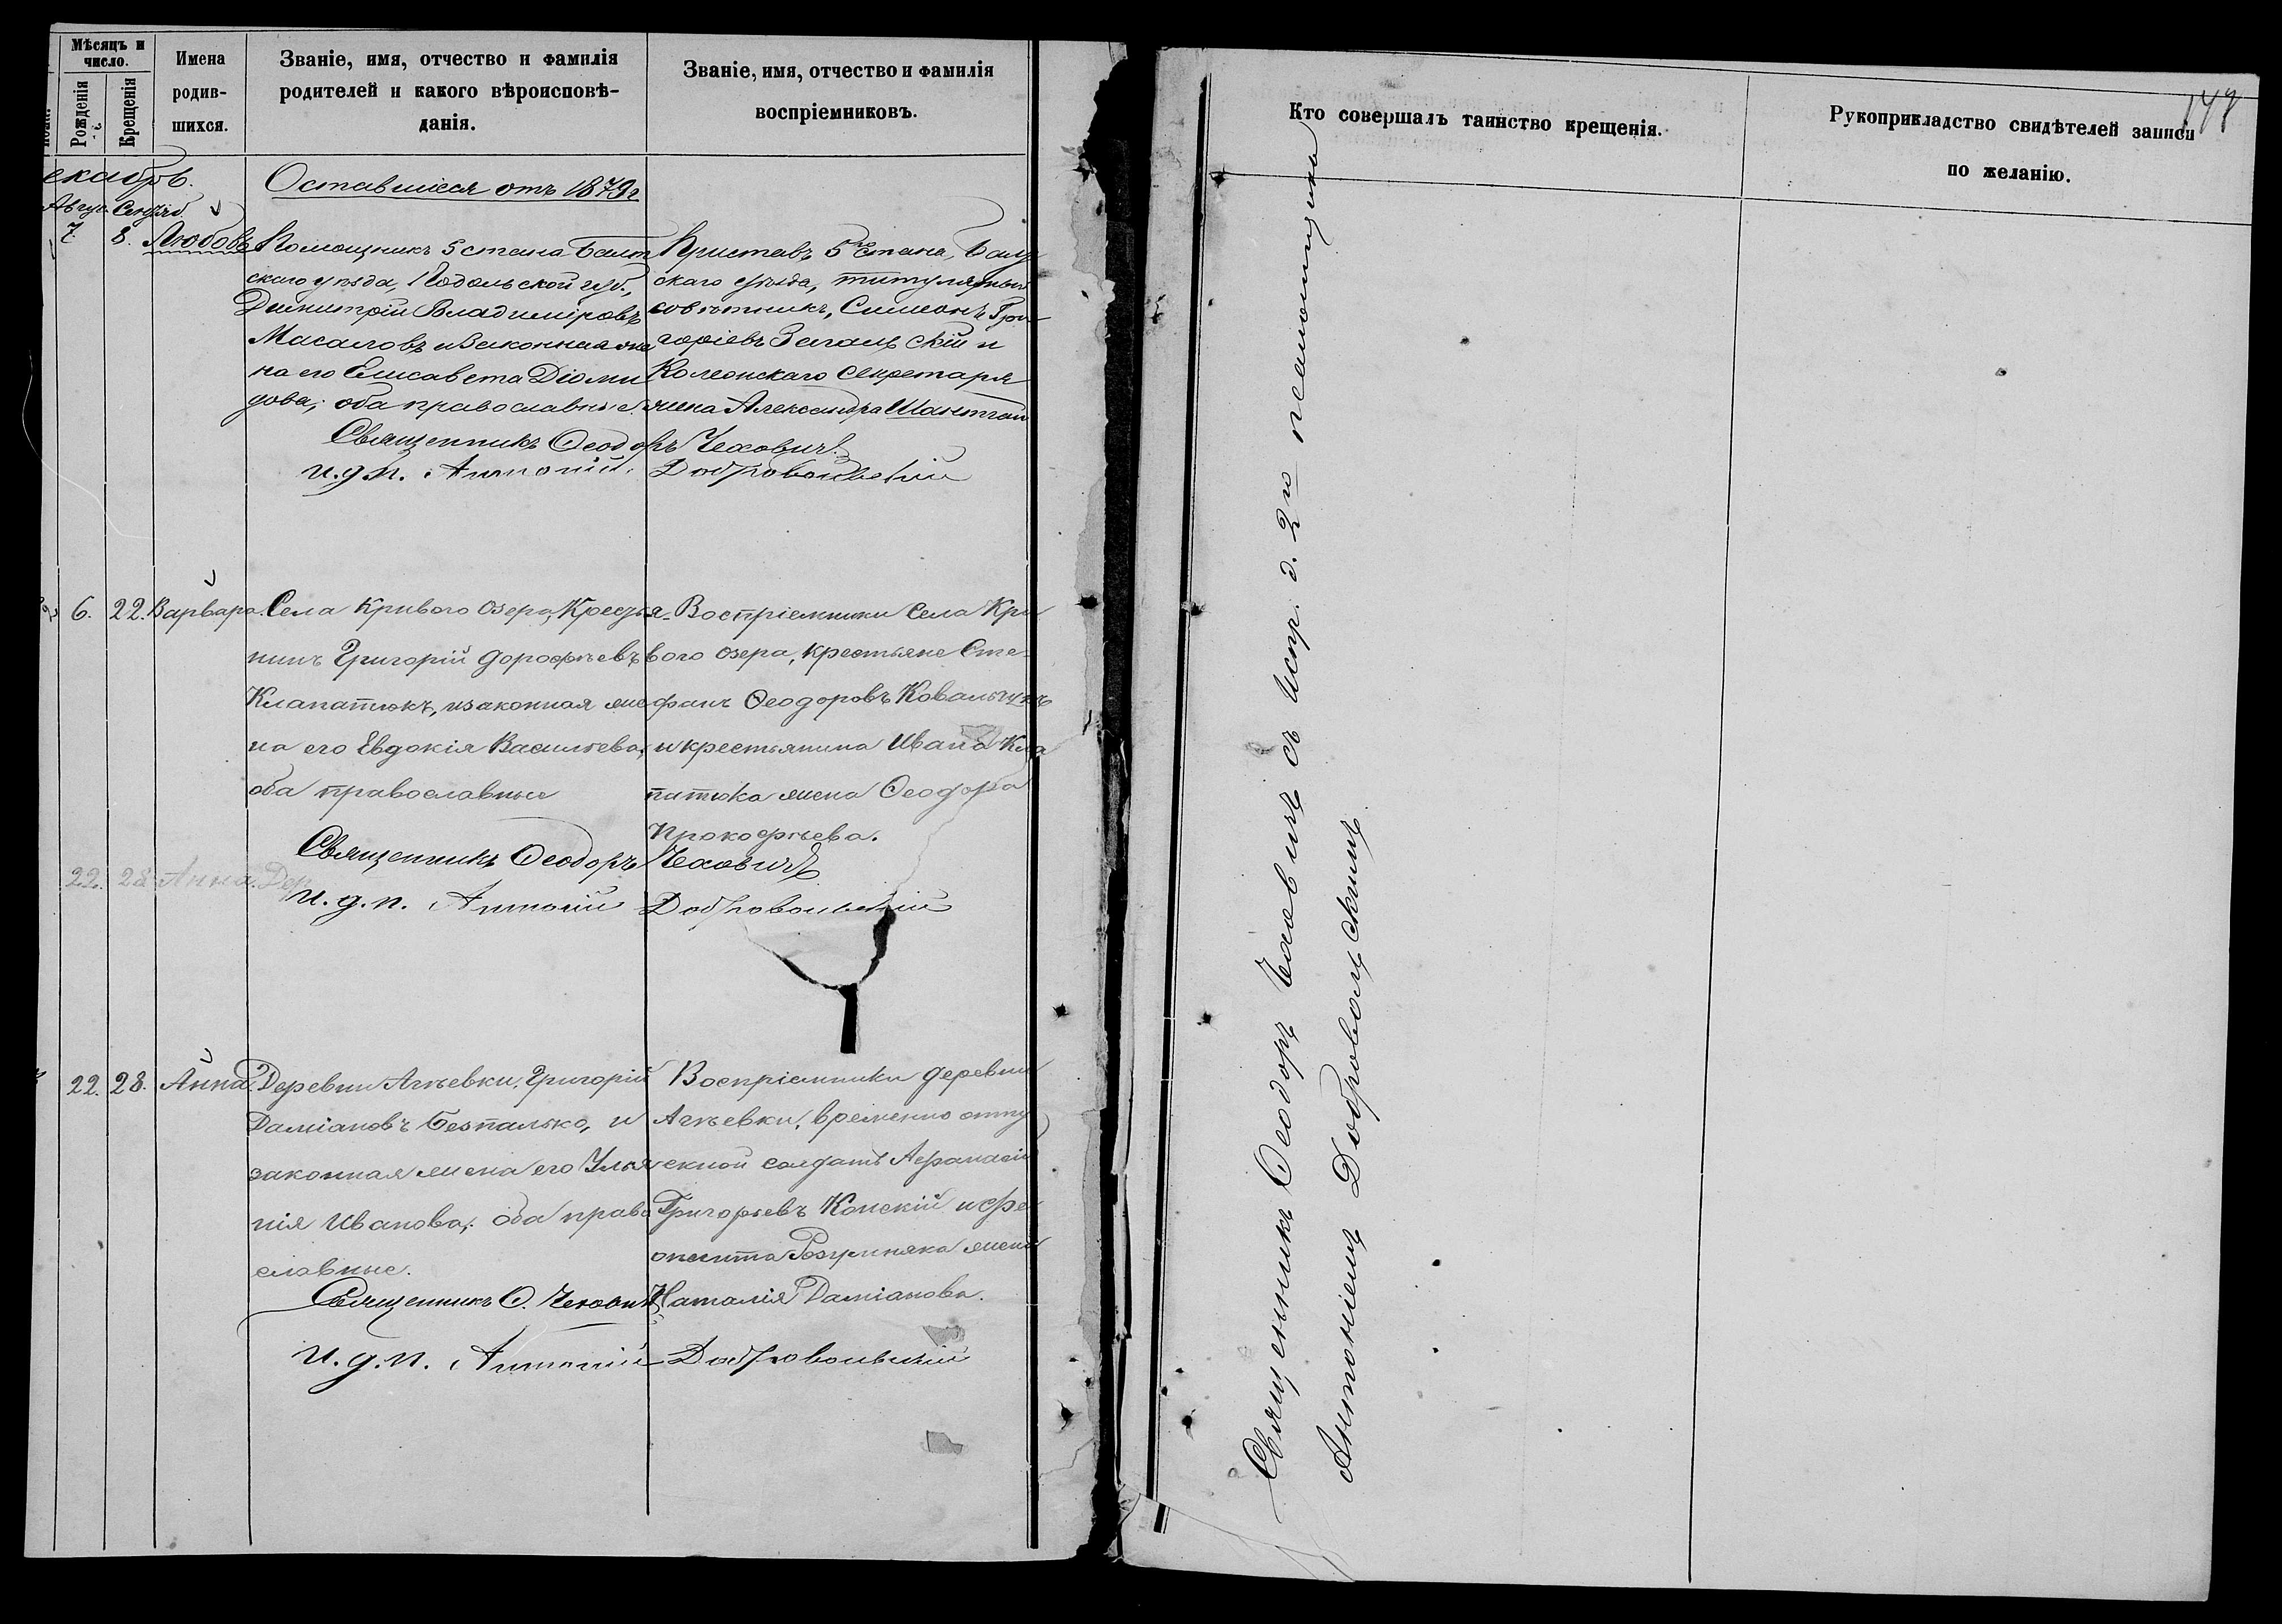 Мѣсяцъ и число.
Рожденія
Крещенія
Имена родив-шихся.
Званіе, имя, отчество и фамилія
родителей и какого вѣроисповѣ-
данія.
Званіе, имя, отчество и фамилія
воспріемниковъ.
екабрь.
Оставшіеся отъ 1879 г
Авгус. Сентяб.
7. 8. Любовь
Помощникъ 5 стана Балт
скаго уѣзда, Подольской губ.,
Димитрій Владиміровъ
Масаловъ и законная же
на его Елисавета Діоми
дова, оба православные.
Приставъ 5го стана, Балт
скаго уѣзда, титулярный
совѣтникъ, Симеонъ Гри
горіевъ Загальскій и
Колежскаго Секретаря
жена Александра
Священникъ Ѳеодоръ Чеховичъ
и.д.п. Антоній Добровольскій
6. 22. Варвара.
Села Криваго Озера, Крестья-
нинъ Григорій Дорофѣевъ
Клапатюкъ, и законная же
на его Евдокія Васильева,
оба православные
Воспріемники села Кри
вого озера, крестьяне Сте-
фанъ Ѳеодоровъ Ковальчукъ
и крестьянина Ивана Кла
патюка жена Ѳеодора
Прокофьева.
Священникъ Ѳеодоръ Чеховичъ
22. 28 Анна. Дер
и.д.п. Антоній Добровольскій
22. 28. Анна
Деревни Агѣевки, Григорій
Даміановъ Безпалько, и
законная жена его Улья
нія Иванова, оба право
славные.
Воспріемники деревни
Агѣевки, временно отпу
скной солдатъ Афанасій
Григорьевъ Конскій и Фе
октиста Розумняка жена
Наталія Даміанова.
Священникъ Ѳ. Чеховичъ
и.д.п. Антоній Добровольскій
Кто совершалъ таинство крещенія.
Рукоприкладство свидѣтелей записи
по желанію.
Священникъ Ѳеодоръ Чеховичъ съ испр. д. 2го псаломщика
Антоніемъ Добровольскимъ